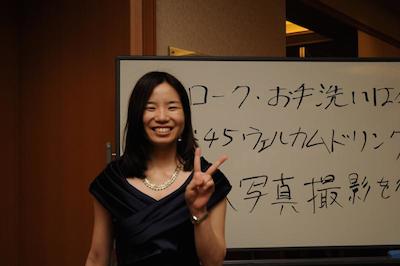 ローク・お手洗いは
:45 ウェルカムドリンク
写真撮影を